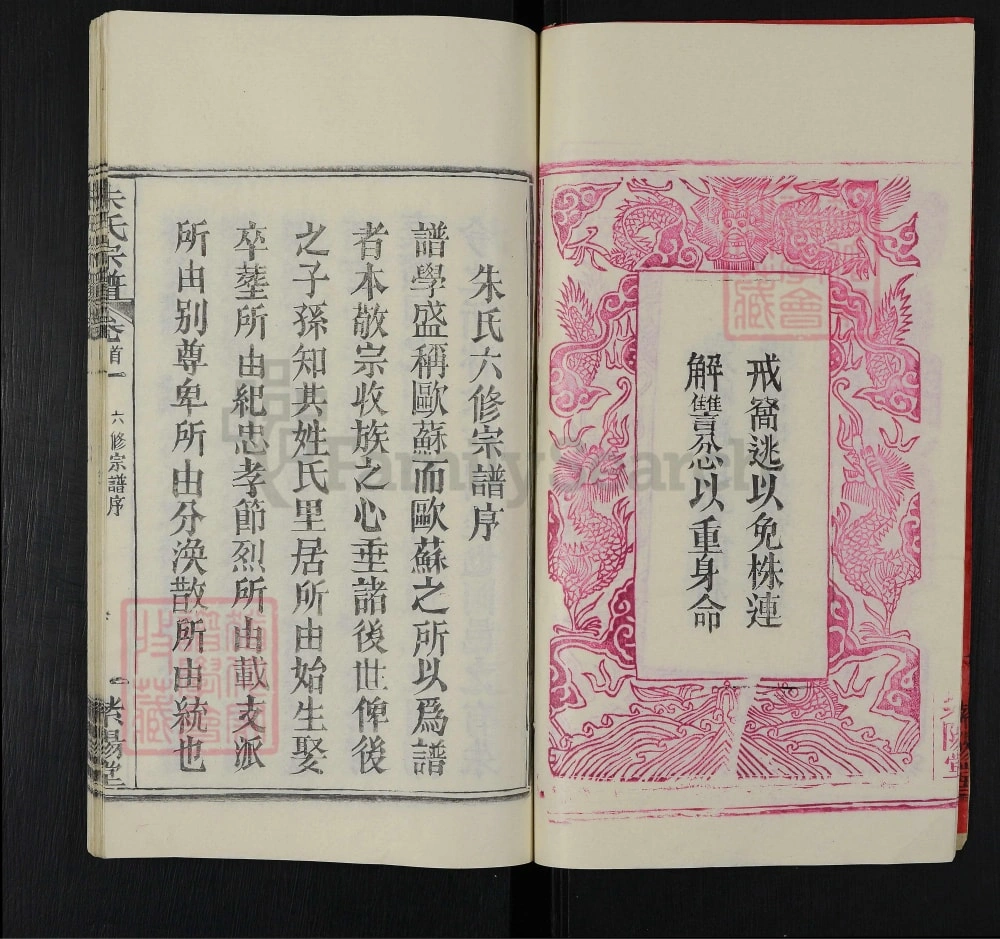 戒窩逃以免株連
解讐忿以重身命
朱氏六修宗譜序
譜學盛稱歐蘇而歐蘇之所以爲譜
者本敬宗收族之心垂諸後世俾後
之子孫知其姓氏里居所由始生娶
卒塟所由紀忠孝節烈所由載支派
所由别尊卑所由分渙散所由統也
朱氏宗譜
卷首一
六修宗譜序
一
紫陽堂
FamilySearch